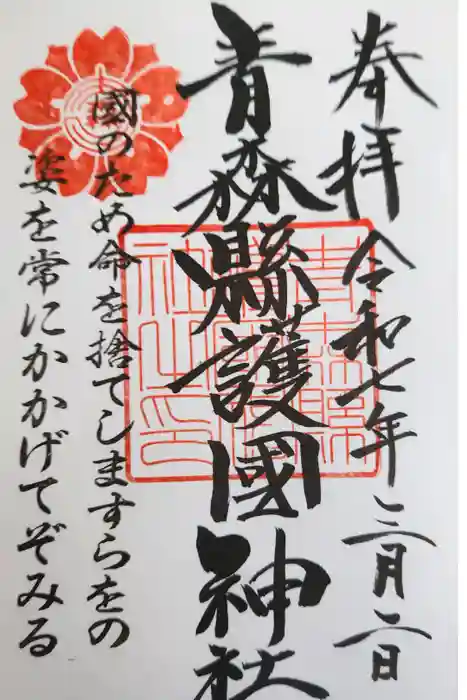 奉拝 令和七年三月二日
青森縣護國神社
國のため命を捨てしますらをの
姿を常にかかげてぞみる
青森縣
護國神
社之印